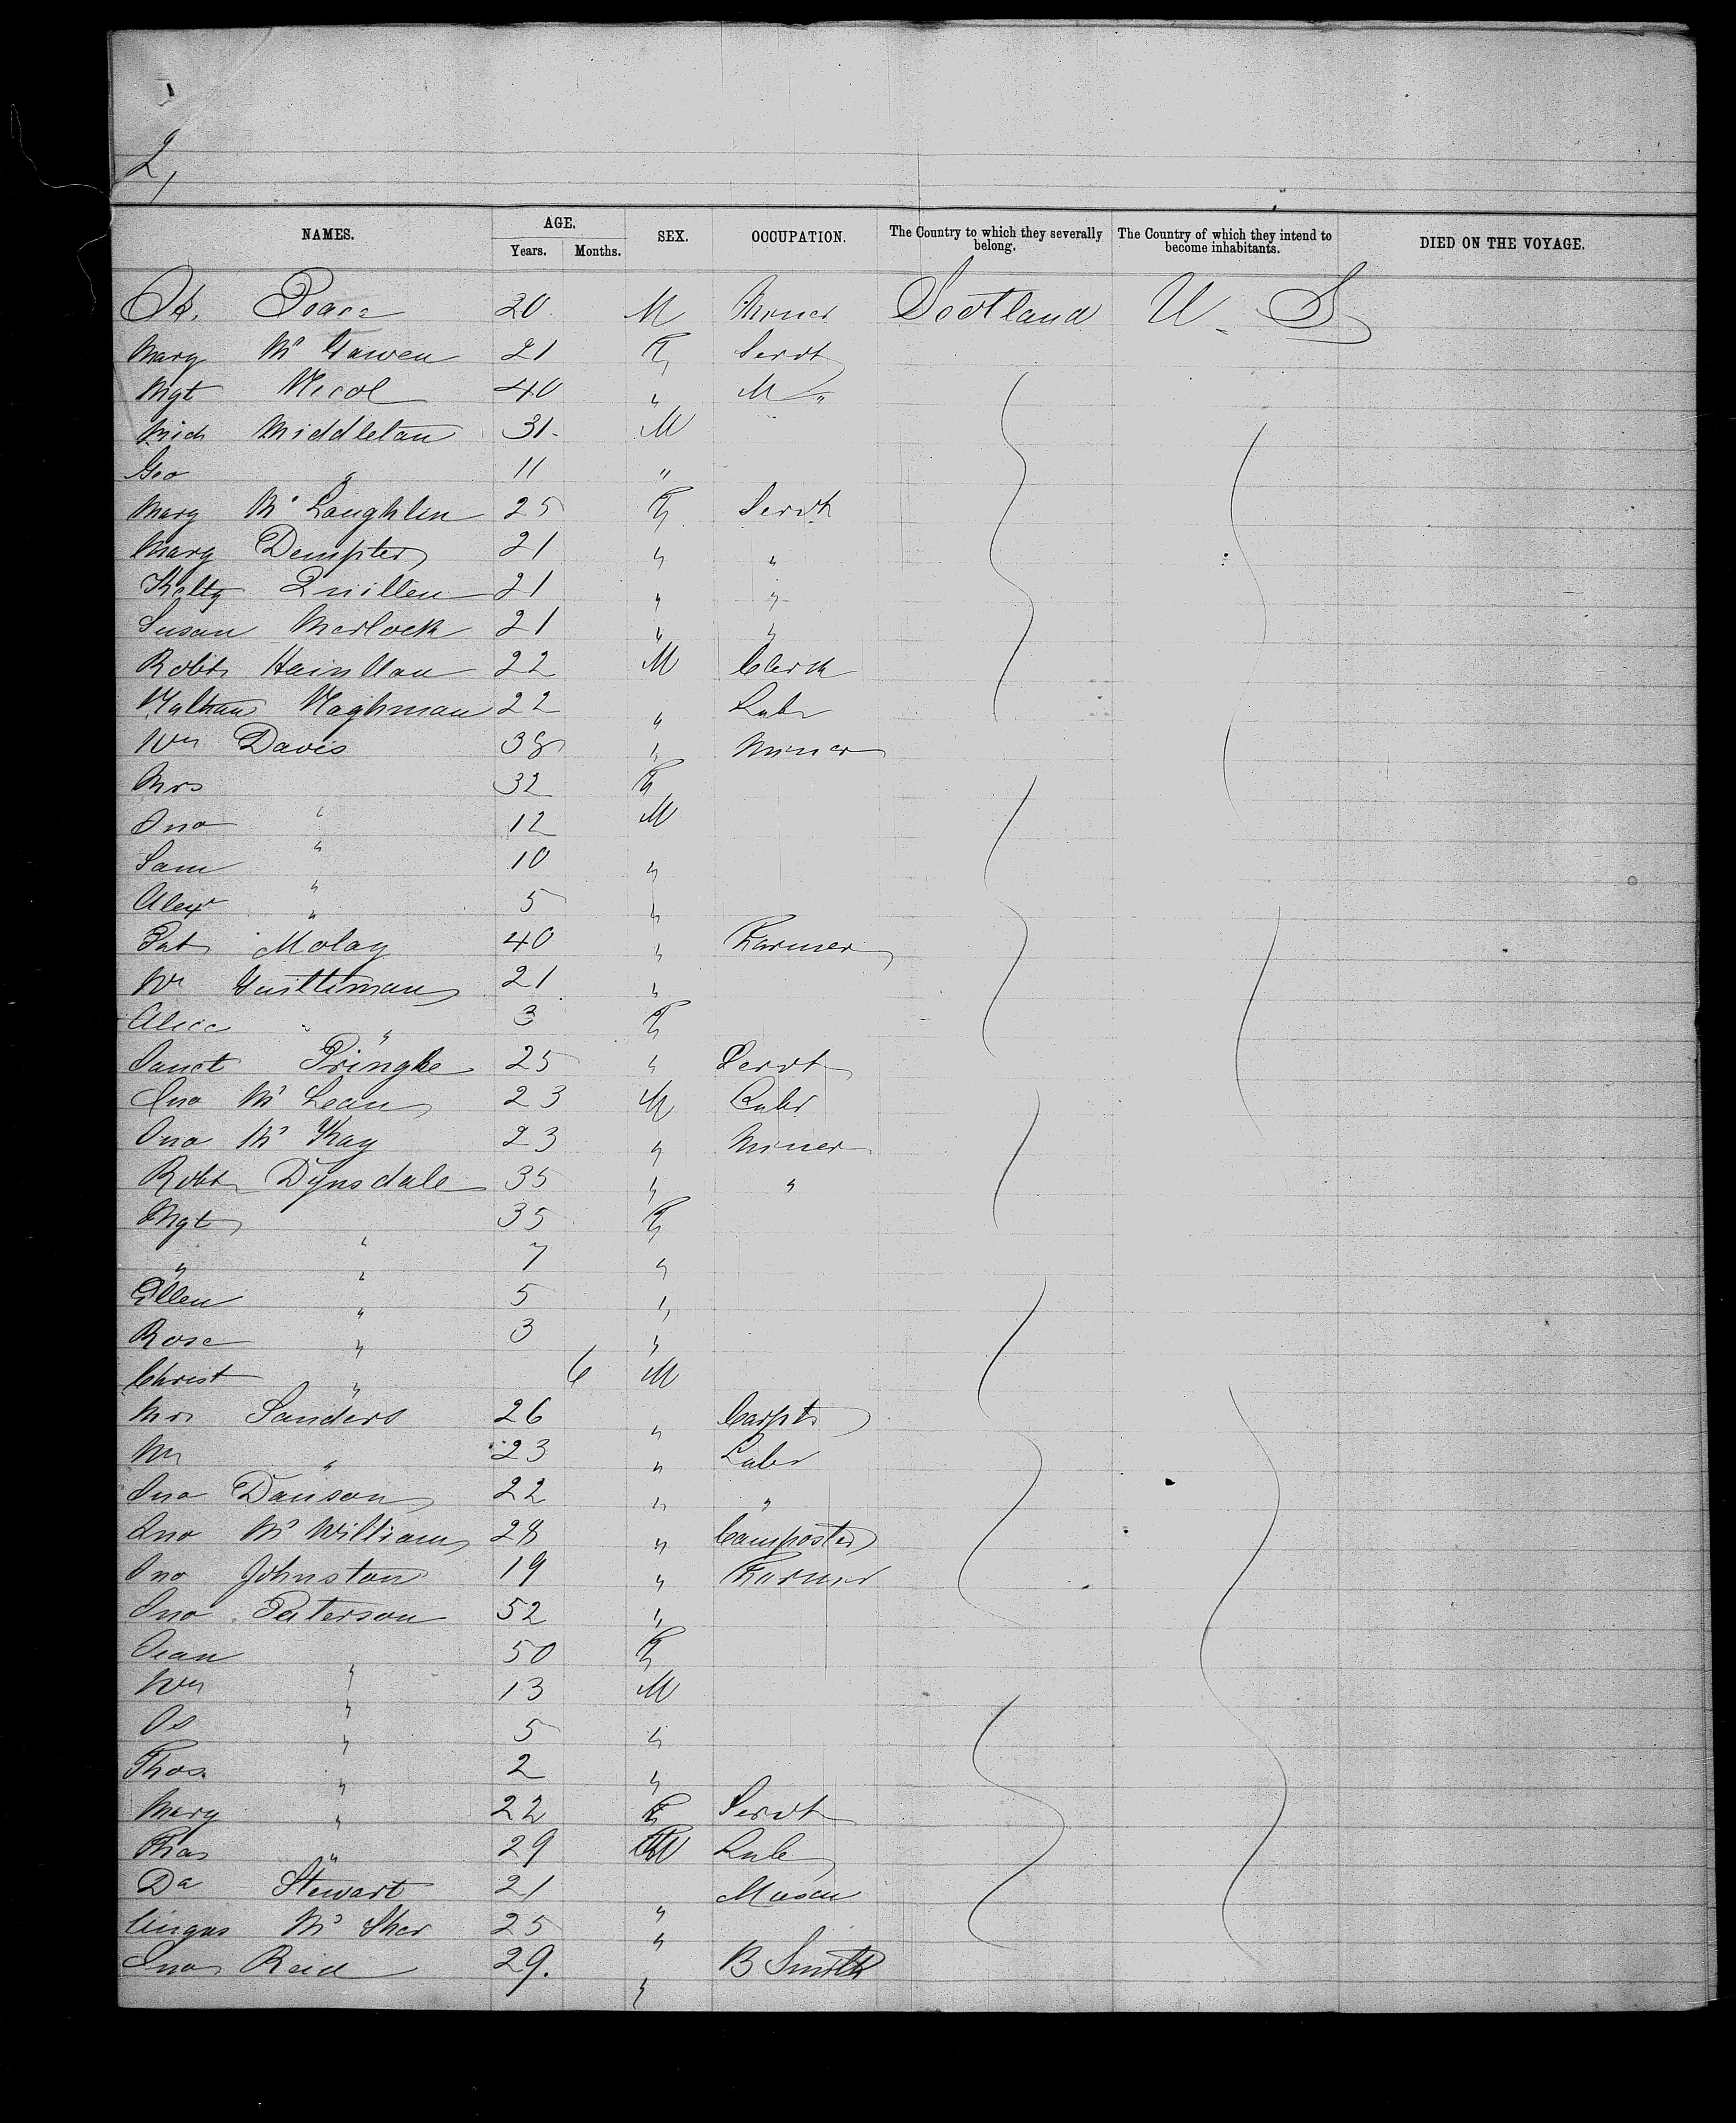 2,
NAMES. AGE. Years. Months. SEX. OCCUPATION. The Country to which they severally belong. The Country of which they intend to become inhabitants. DIED ON THE VOYAGE.
20 M Miner Scotland U. S
Mary Mc 21 F Servt
Mgt Nicol 40 " M "
Mich Middleton 31 M
Geo " 11 "
Mary Mc Laughlin 25 F Servt
Mary Dempster 21 " "
Quillen 21 " "
Susan Morlock 21 " "
Robt 22 M Clerk
22 " Labr
Wm Davis 38 " Miner
Mrs 32 F
Jno " 12 M
Sam " 10 "
Alexr " 5 "
Pat Molay 40 " Farmer
21 "
Alice " 3 F
Janet Pringle 25 " Servt
Jno Mc Lean 23 M Labr
Jno Mc Kay 23 " Miner
Robt Dynsdale 35 " "
Mgt " 35 F
" " 7 "
Ellen " 5 "
Rose " 3 "
Christ " 6 M
Sanders 26 " Carptr
" 23 " Labr
Jno Dawson 22 " "
Jno Mc William 28 " Composter
Jno Johnston 19 " Farmer
Jno Paterson 52 "
Jean " 50 F
Wm " 13 M
Js " 5 "
Thos. " 2 "
Mary " 22 F Servt
Thos " 29 M Lab
Dd Stewart 21 " Mason
Angus Mc 25 "
Jno Reid 29. " B Smith